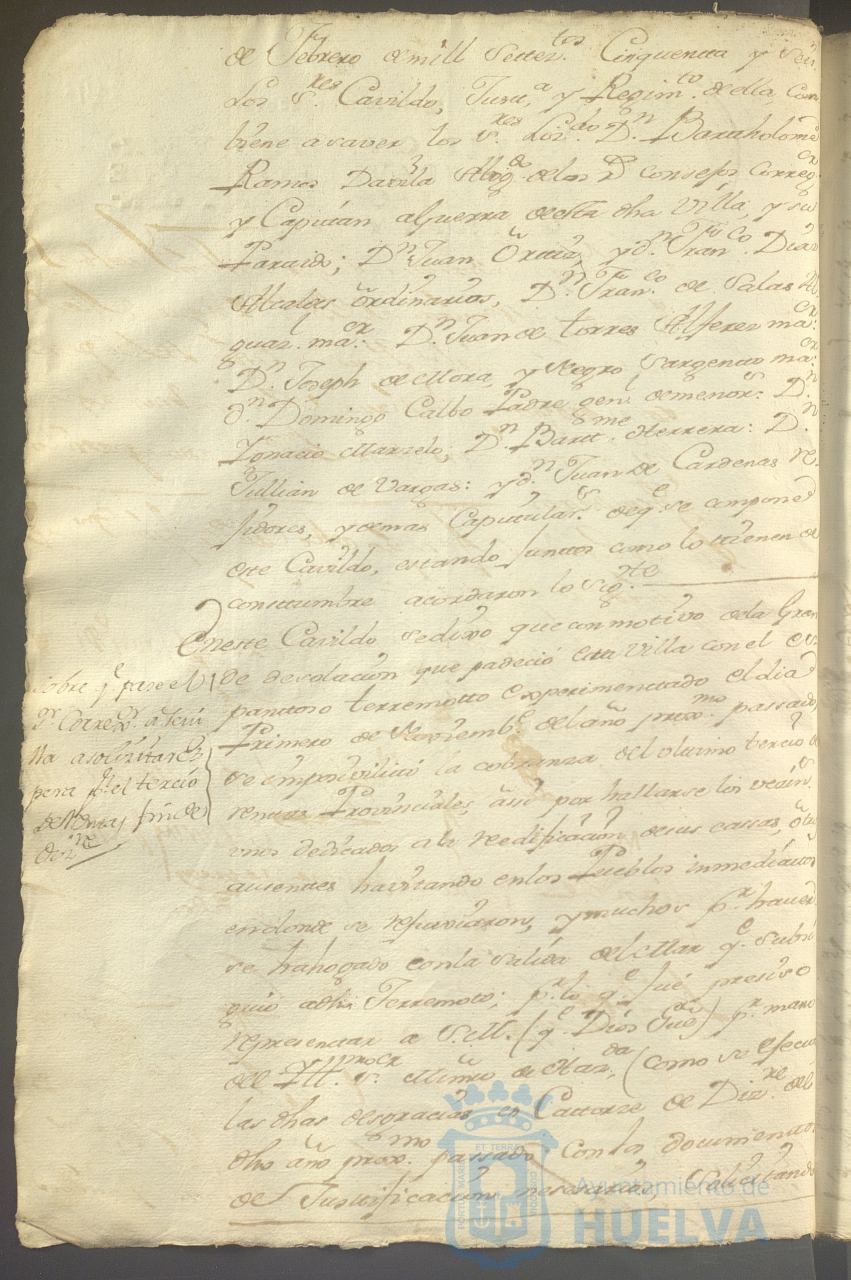 de Febrero de mill Setter.tos Cinquenta y Seis
Los S.res Cavildo, Just.a y Regim.to de ella, com
biene a saver los S.res Liz.do D.n Bartholome
Ramos Davila Abog.do de los R.s consejos Correg.or
y Capitan a Guerra de esta dha Villa, y su
Partido; D.n Juan Ortiz, y d.n Fran.co Diaz
Alcaldes ordinarios, D.n Fran.co de Salas Al
guaz.l ma.or D.n Juan de torres Alferez ma.or
D.n Joseph de Mora, y Negro, Sargento ma.or
d.n Domingo Calbo Padre gen.l de menor.s D.n
Ignacio Marzelo; D.n Bart.me Herrera: D.n
Jullian de Vargas: y d.n Juan de Cardenas Re
jidores, y demas Capitular.s de q.e se compone
este Cavildo, estando juntos como lo tienen de
constumbre acordaron lo sig.te
En este Cavildo se dixo que con motivo de la Gran
de desolacion que padeció esta Villa con el es
pantoso terremotto experimentado el dia
Primero de Noviemb.e del año prox.mo passado,
se imposivilitó la cobranza del ultimo tercio de
rentas Provinciales, asi por hallarse los vecin.s
unos dedicados a la reedificacion de sus cassas, otros
ausentes havitando en los Pueblos inmediatos
en donde se refuxiaron, y muchos p.r haver
se hahogado con la salida del Mar q.e subsi
guió a dho Terremoto; p.r lo q.e fué presiso
representar a S.M. (q.e Dios Gue) p.r mano
del Ill.mo S.r Minro de Haz.da (como se efectuo
las dhas desgracias en Cattorze de Diz.re del
dho año prox.mo passado con los documentos
de Justificacion nesesarios Solicitando
Sobre q.e pase el
S.r Correx.or a Sevi
lla a solizitar es
pera p.r el tercio
de R.s fin de
Diz.re
Ayuntamiento de
HUELVA